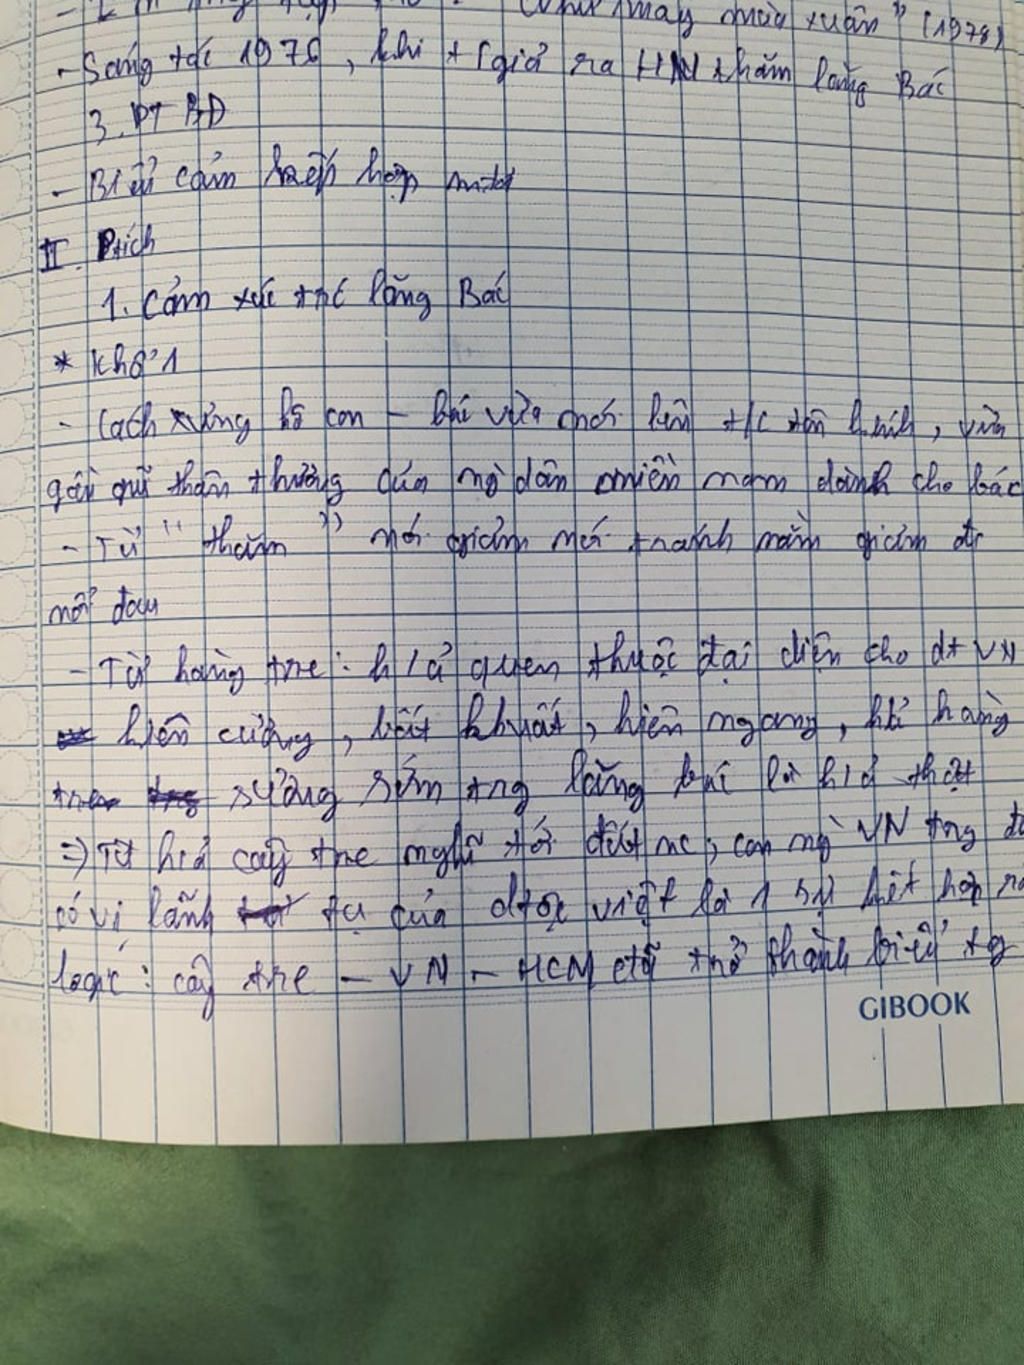 - In trong tập thơ: "Như mây mùa xuân" (1978)
- Sáng tác 1976, khi t/giả ra HN thăm lăng Bác
3. PT BĐ
- Biểu cảm kết hợp m.tả
II. Ptích
1. Cảm xúc trc lăng Bác
* Khổ 1
- Cách xưng hô con - bác vừa mới lên t/c tôn kính, vừa
gần gũi thân thương của ng dân miền nam dành cho bác
- Từ "thăm" nói giảm nói tránh nằm giảm đi
nỗi đau
- Từ hàng tre: h/ả quen thuộc đại diện cho dt VN
kiên cường, bất khuất, hiên ngang, kể hàng
sương sớm tng lăng bác là h/ả thật
=> Từ h/ả cây tre nghĩ tới đất nc, con ng VN tng đó
có vị lãnh tụ của dtộc việt là 1 sự kết hợp rất
logic: cây tre - VN - HCM đã trở thành biểu tg
GIBOOK